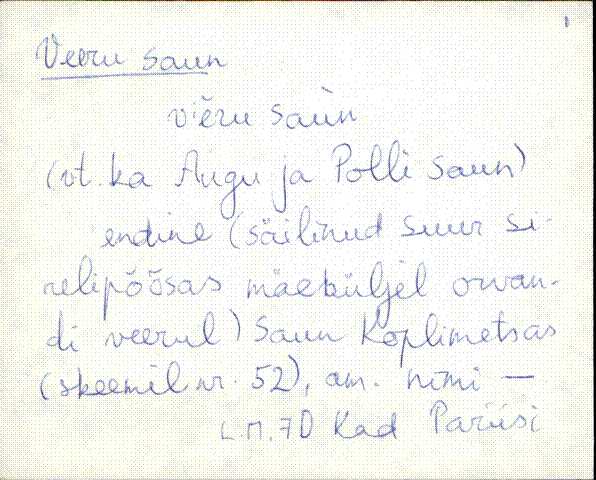 1
Veeru saun
viĕru saùn
(vt. ka Augu ja Polli saun)
endine (säilinud suur si-
relipõõsas mäeküljel orvan-
di veerul) saun Koplimetsas
(skeemil nr. 52), am. nimi —
L.M. 70 Kad Pariisi